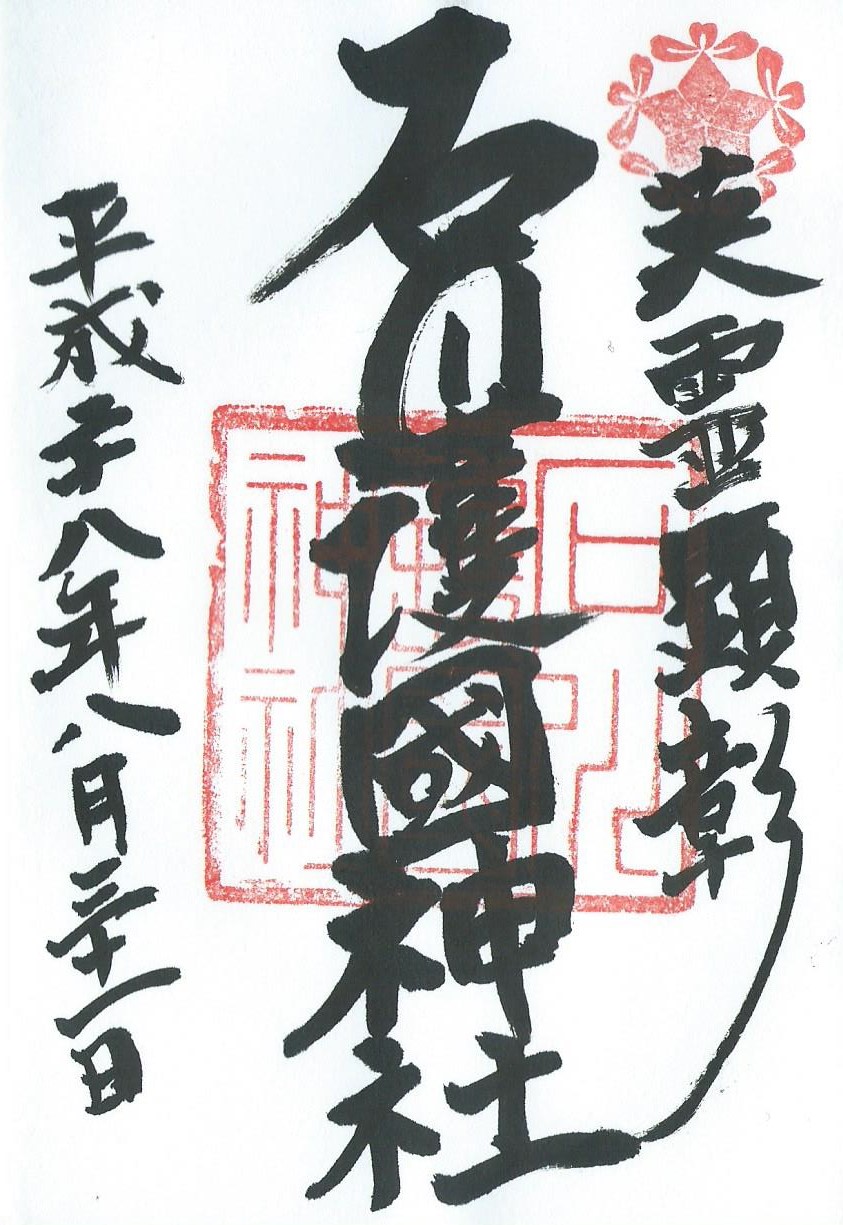 英霊顕彰
石川護國神社
平成二十八年八月三十一日
石川
護國
神社